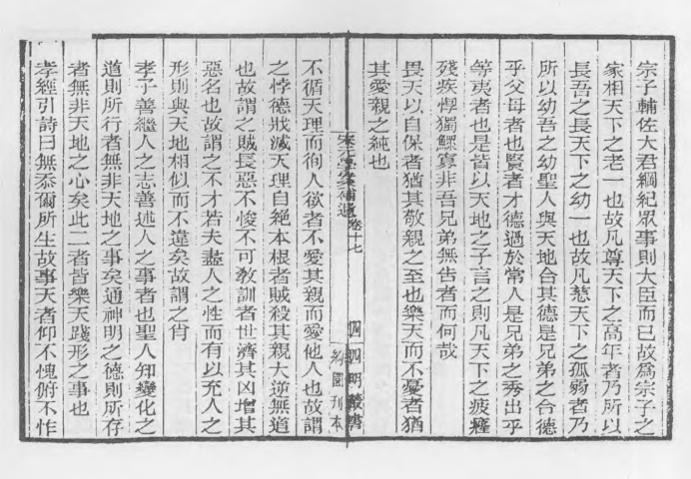 宗子輔佐大君綱紀眾事則大臣而已故爲宗子之
家相天下之老一也故凡尊天下之高年者乃所以
長吾之長天下之幼一也故凡慈天下之孤弱者乃
所以幼吾之幼聖人與天地合其德是兄弟之合德
乎父母者也賢者才德過於常人是兄弟之秀出乎
等夷者也是皆以天地之子言之則凡天下之疲癃
殘疾惸獨鰥寡非吾兄弟無告者而何哉
畏天以自保者猶其敬親之至也樂天而不憂者猶
其愛親之純也
宋元學案補遺 卷十七
四明叢書
約園刊本
不循天理而徇人欲者不愛其親而愛他人也故謂
之悖德戕滅天理自絕本根者賊殺其親大逆無道
也故謂之賊長惡不悛不可敎訓者世濟其凶增其
惡名也故謂之不才若夫盡人之性而有以充人之
形則與天地相似而不違矣故謂之肖
孝子善繼人之志善述人之事者也聖人知變化之
道則所行者無非天地之事矣通神明之德則所存
者無非天地之心矣此二者皆樂天踐形之事也
孝經引詩曰無忝爾所生故事天者仰不愧俯不怍